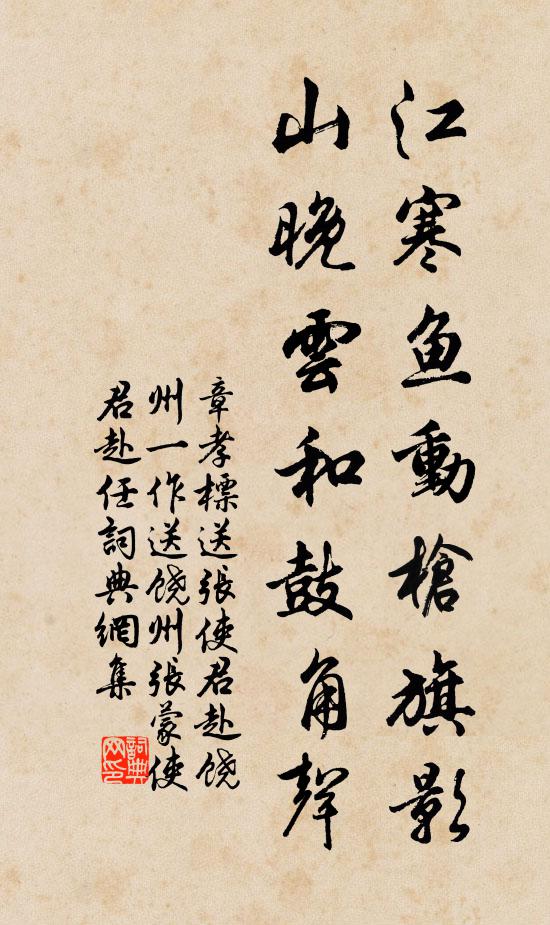 江寒鱼動槍旗影
山晚雲和鼓角聲
章孝標送張使君赴饶
州一作送饶州張蒙使
君赴任詞典網集
詞典
网印